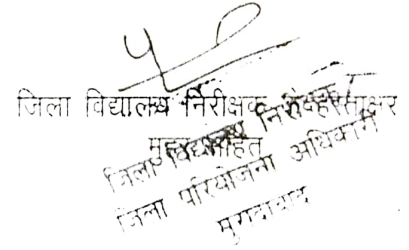 जिला विद्यालय निरीक्षक के हस्ताक्षर
मुहर सहित
जिला विद्यालय निरीक्षक/
जिला परियोजना अधिकारी
मुरादाबाद